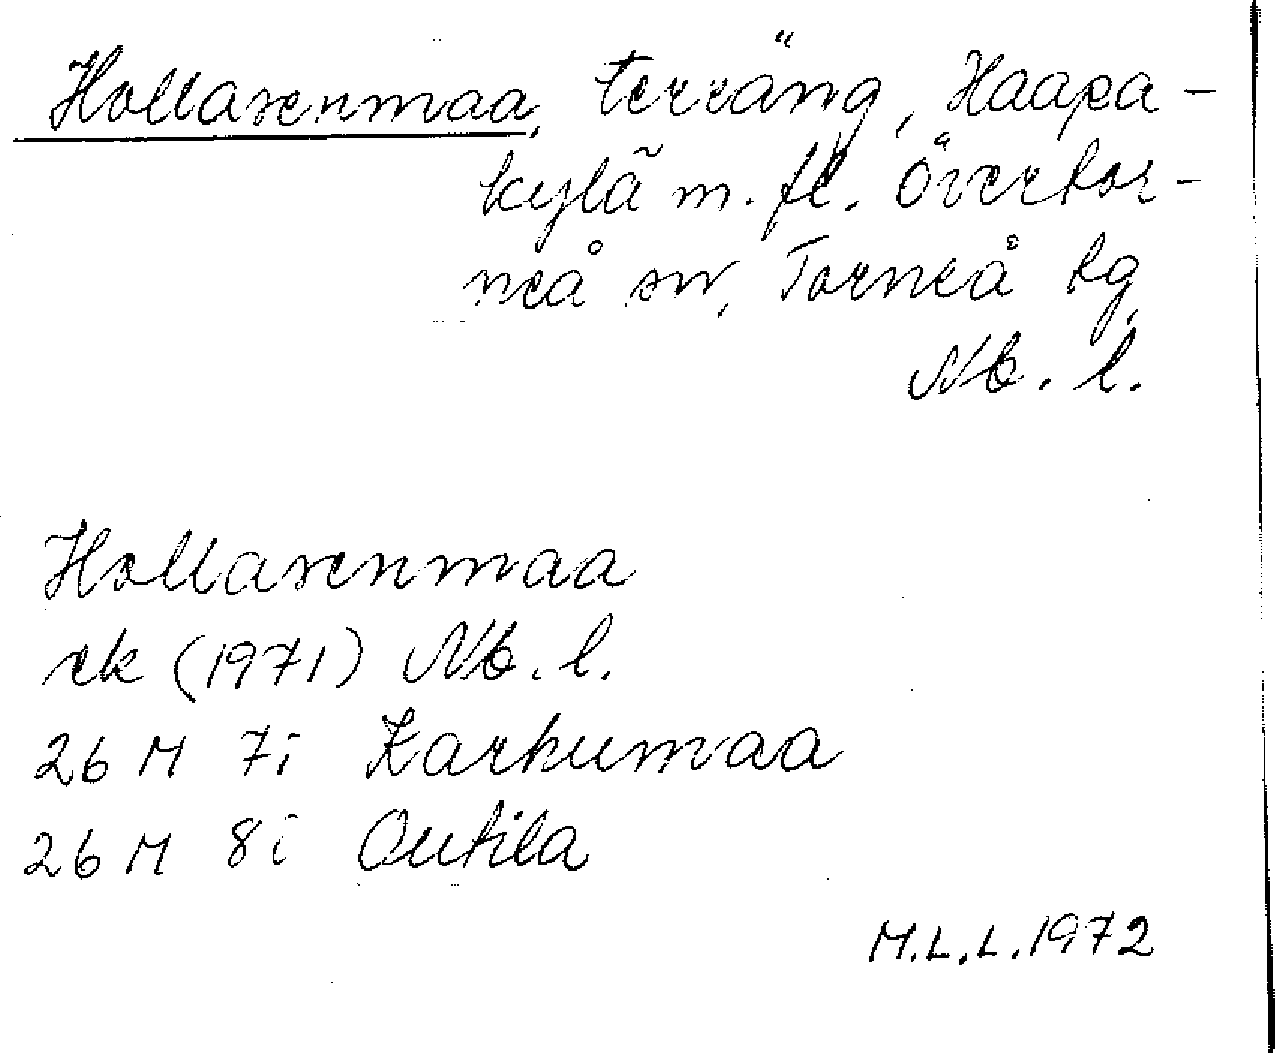 Hollasenmaa, terräng, Haapa-
kylä m. fl. Övertor-
neå sn, Torneå tg,
Nb. l.
Hollasenmaa
ek (1971) Nb. l.
26 M 7i Karhumaa
26 M 8i Outila
M.L.L. 1972